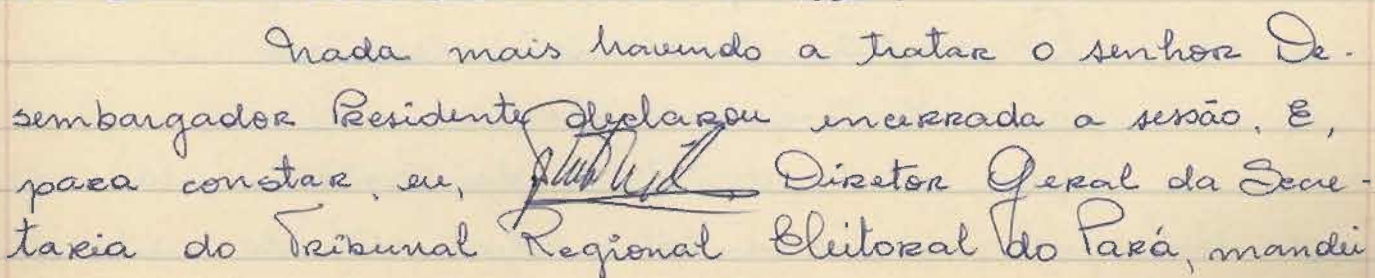 Nada mais havendo a tratar o senhor De-
sembargador Presidente declarou encerrada a sessão. E,
para constar, eu, Diretor Geral da Secre-
taria do Tribunal Regional Eleitoral do Pará, mandei